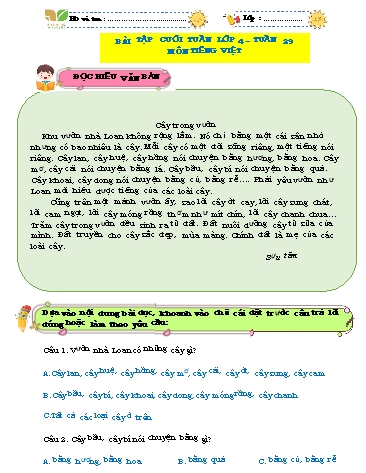 Họ và tên : ……………………………… Lớp : ……………
BÀI TẬP CUỐI TUẦN LỚP 4 – TUẦN 29
MÔN TIẾNG VIỆT
ĐỌC HIỂU VĂN BẢN
Cây trong vườn
Khu vườn nhà Loan không rộng lắm. Nó chỉ bằng một cái sân nhỏ
nhưng có bao nhiêu là cây. Mỗi cây có một đời sống riêng, một tiếng nói
riêng. Cây lan, cây huệ, cây hồng nói chuyện bằng hương, bằng hoa. Cây
mơ, cây cải nói chuyện bằng lá. Cây bầu, cây bí nói chuyện bằng quả.
Cây khoai, cây dong nói chuyện bằng củ, bằng rễ…. Phải yêu vườn như
Loan mới hiểu được tiếng của các loài cây.
Cũng trên một mảnh vườn ấy, sao lời cây ớt cay, lời cây sung chát,
lời cam ngọt, lời cây móng rồng thơm như mít chín, lời cây chanh chua…
Trăm cây trong vườn đều sinh ra từ đất. Đất nuôi dưỡng cây từ sữa của
mình. Đất truyền cho cây sắc đẹp, mùa màng. Chính đất là mẹ của các
loài cây.
Sưu tầm
Dựa vào nội dung bài đọc, khoanh vào chữ cái đặt trước câu trả lời
đúng hoặc làm theo yêu cầu:
Câu 1. Vườn nhà Loan có những cây gì?
A. Cây lan, cây huệ, cây hồng, cây mơ, cây cải, cây ớt, cây sung, cây cam
B. Cây bầu, cây bí, cây khoai, cây dong, cây móng rồng, cây chanh
C. Tất cả các loại cây ở trên
Câu 2. Cây bầu, cây bí nói chuyện bằng gì?
A. bằng hương, bằng hoa B. bằng quả C. bằng củ, bằng rễ